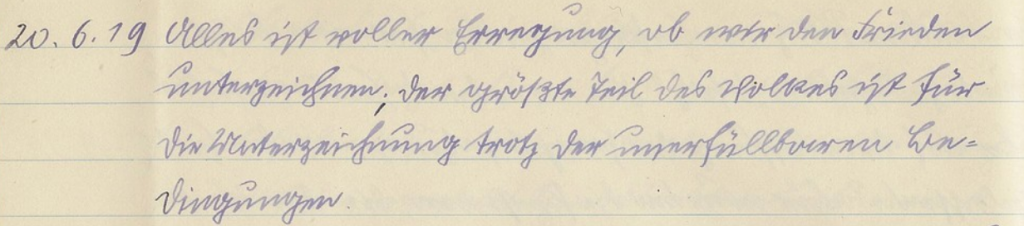 20.6.19 Alles ist voller Erregung, ob wir den Frieden
unterzeichnen; der größte Teil des Volkes ist für
die Unterzeichnung trotz der unerfüllbaren Be=
dingungen.